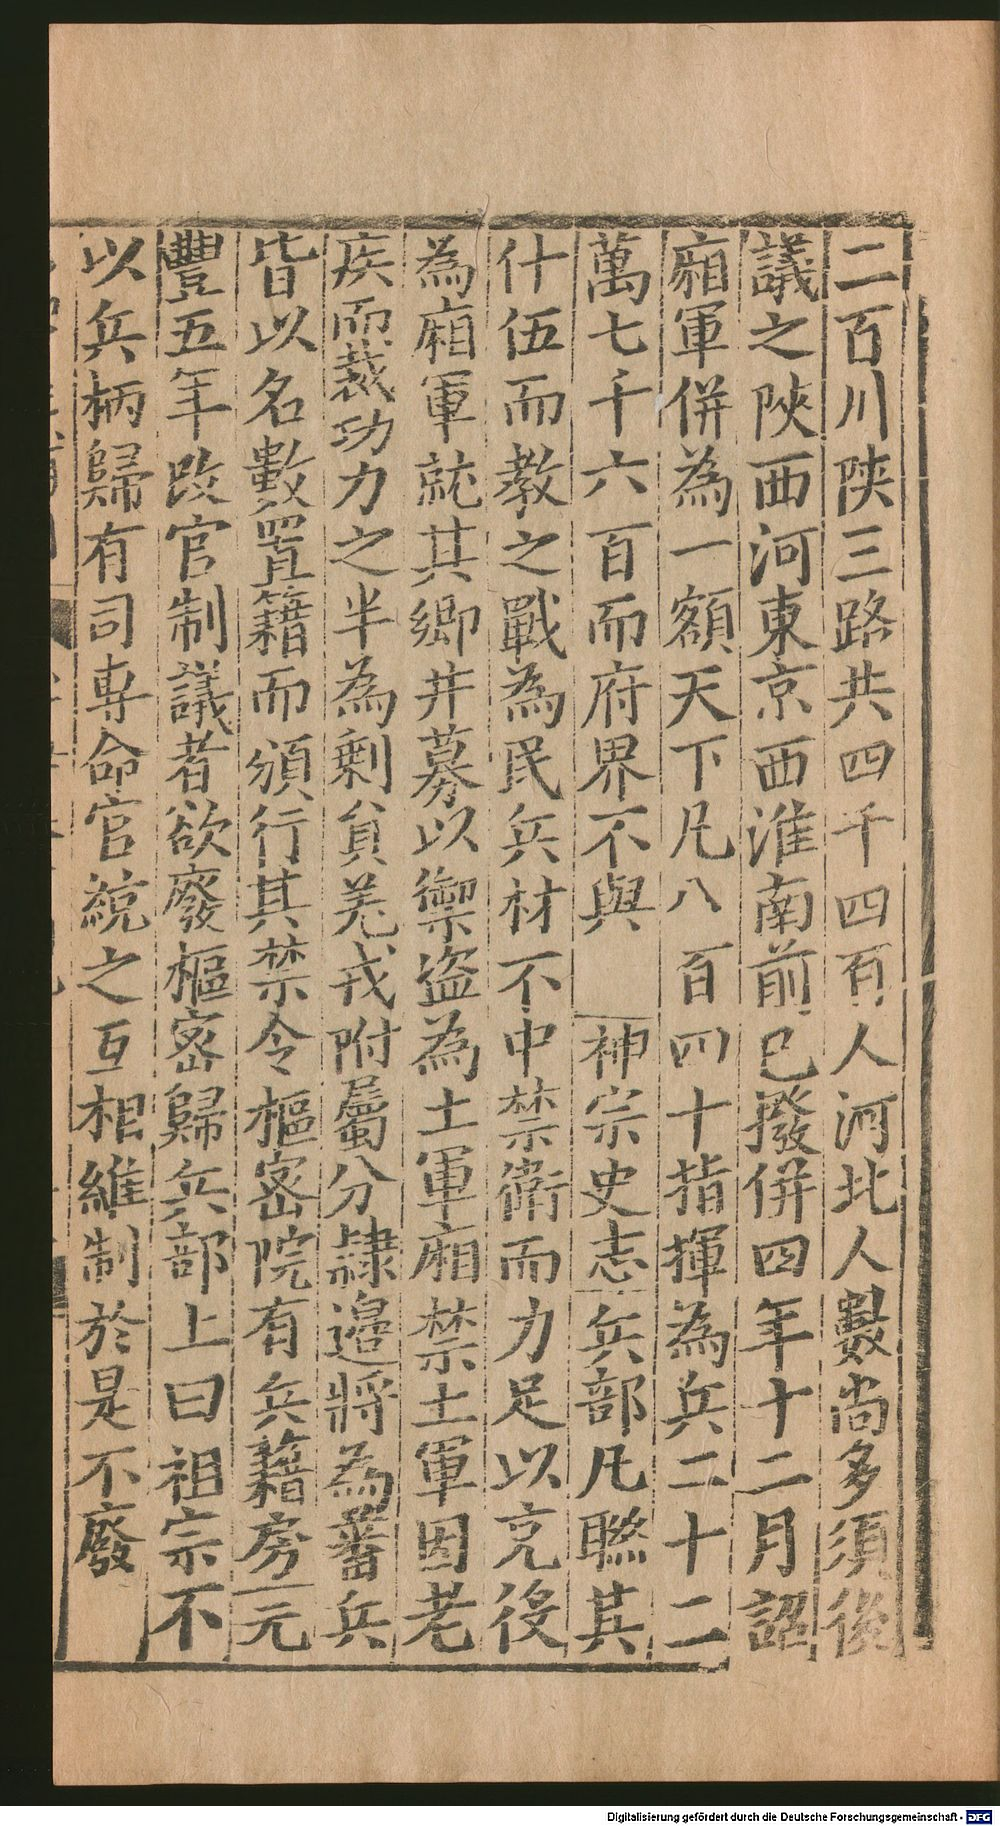 二百川陝三路共四千四百人河北人數尚多須後
議之陝西河東京西淮南前已撥併四年十二月詔
廂軍併為一額天下凡八百四十指揮為兵二十二
萬七千六百而府界不與 神宗史志兵部凡聯其
什伍而教之戰為民兵材不中禁衛而力足以充役
為廂軍就其鄉井募以禦盜為土軍廂禁土軍因老
疾而裁功力之半為剩員羌戎附屬分隸邊將為蕃兵
皆以名數置籍而頒行其禁令樞密院有兵籍房元
豐五年改官制議者欲廢樞密歸兵部上曰祖宗不
以兵柄歸有司専命官統之互相維制於是不廢
Digitalisierung gefördert durch die Deutsche Forschungsgemeinschaft - DFG